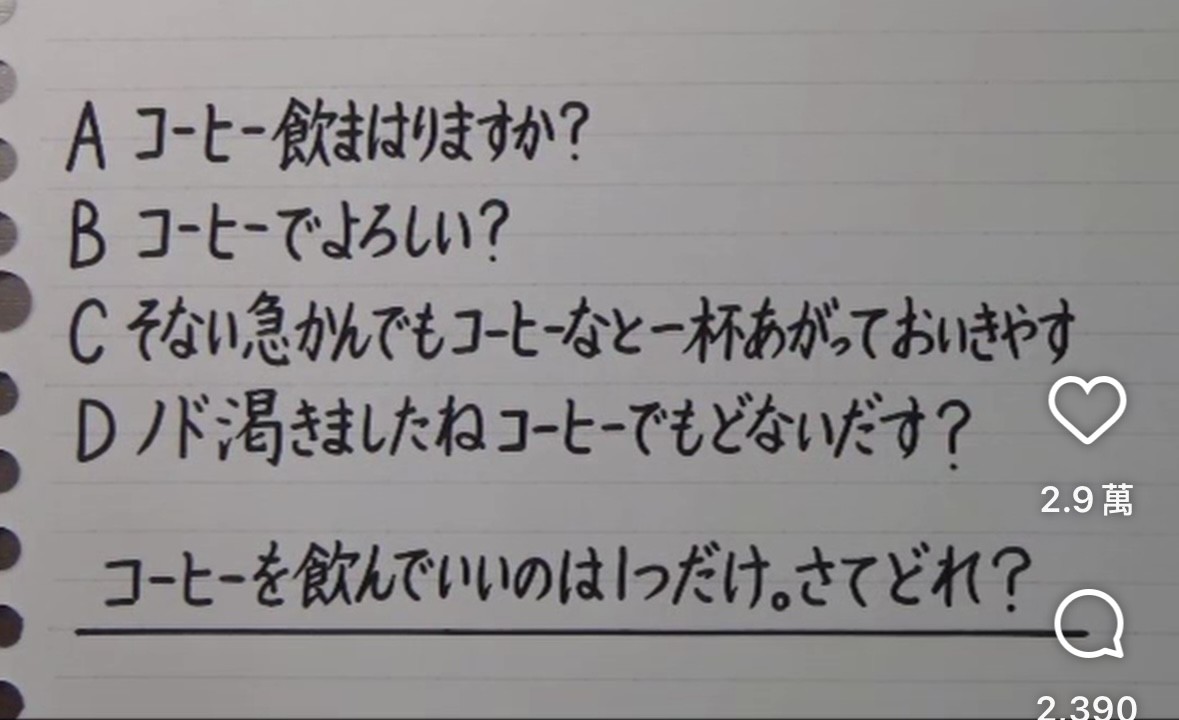 A コーヒー飲まはりますか?
B コーヒーでよろしい?
C そない急かんでもコーヒーなと一杯あがっておいきやす
D ノド渇きましたねコーヒーでもどないだす?
2.9 萬
コーヒーを飲んでいいのは1つだけ。さてどれ?
2,390